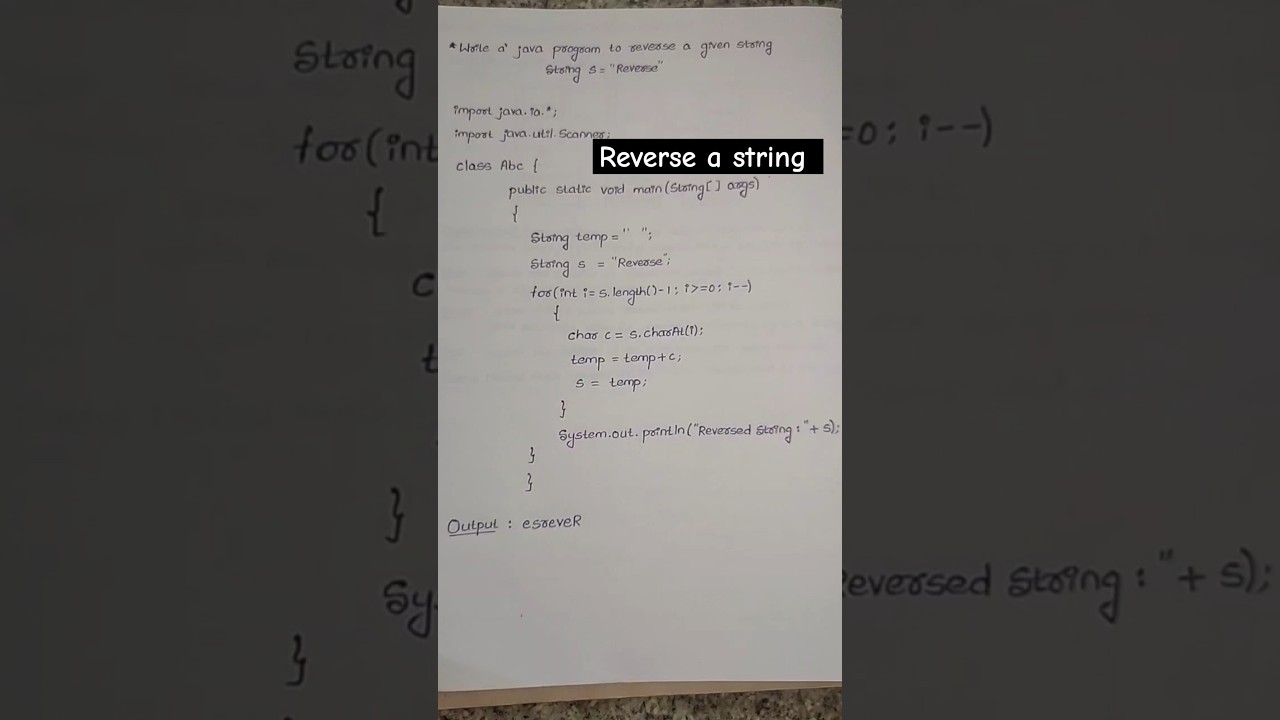 * Write a java program to reverse a given string
String s = "Reverse"
import java.io.*;
import java.util.Scanner;
Reverse a string
class Abc {
public static void main(String[] args)
{
String temp = " ";
String s = "Reverse";
for(int i= s.length()-1; i>=0; i--)
{
char c = s.charAt(i);
temp = temp+c;
s = temp;
}
System.out.println("Reversed String : "+ s);
}
}
Output : esreveR
String
for(int
=0; i--)
{
c
t
}
Sy
eversed String : "+ s);
}